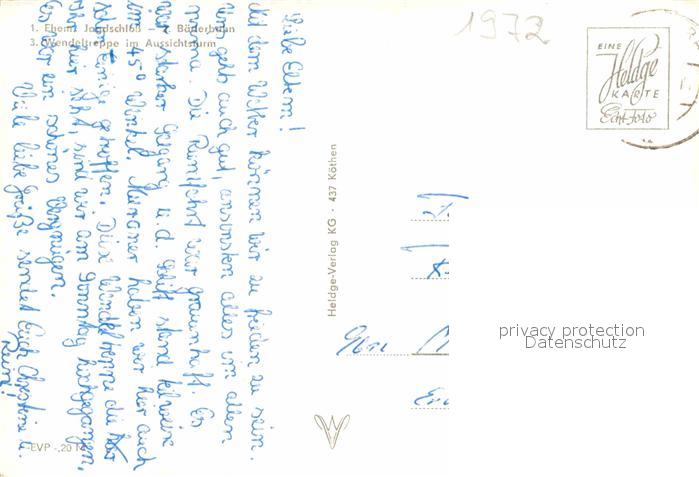 1. Ehem. Jagdschloß - 2. Bäderbahn
3. Wendeltreppe im Aussichtsturm
1972
EINE
Heldge
KARTE
Echt Foto
Liebe Eltern!
Mit dem Wetter können wir zufrieden zu sein.
uns geht auch gut, ansonsten alles im allem
prima. Die Rundfahrt war grauenhaft. Es
war starker Seegang u. d. Schiff stand teilweise
im 45° Winkel. Meraner haben wir hier auch
schon einige getroffen. Diese Wendeltreppe die
ihr hier seht, sind wir am Sonntag hochgegangen.
Es war ein schönes Vergnügen.
Viele liebe Grüße sendet Euch Christine u.
Heldge-Verlag KG · 437 Köthen
EVP -,20
privacy protection
Datenschutz